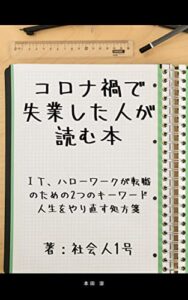 コロナ禍で
失業した人が
読む本
ＩＴ、ハローワークが転職
のための2つのキーワード
人生をやり直す処方箋
著：社会人1号